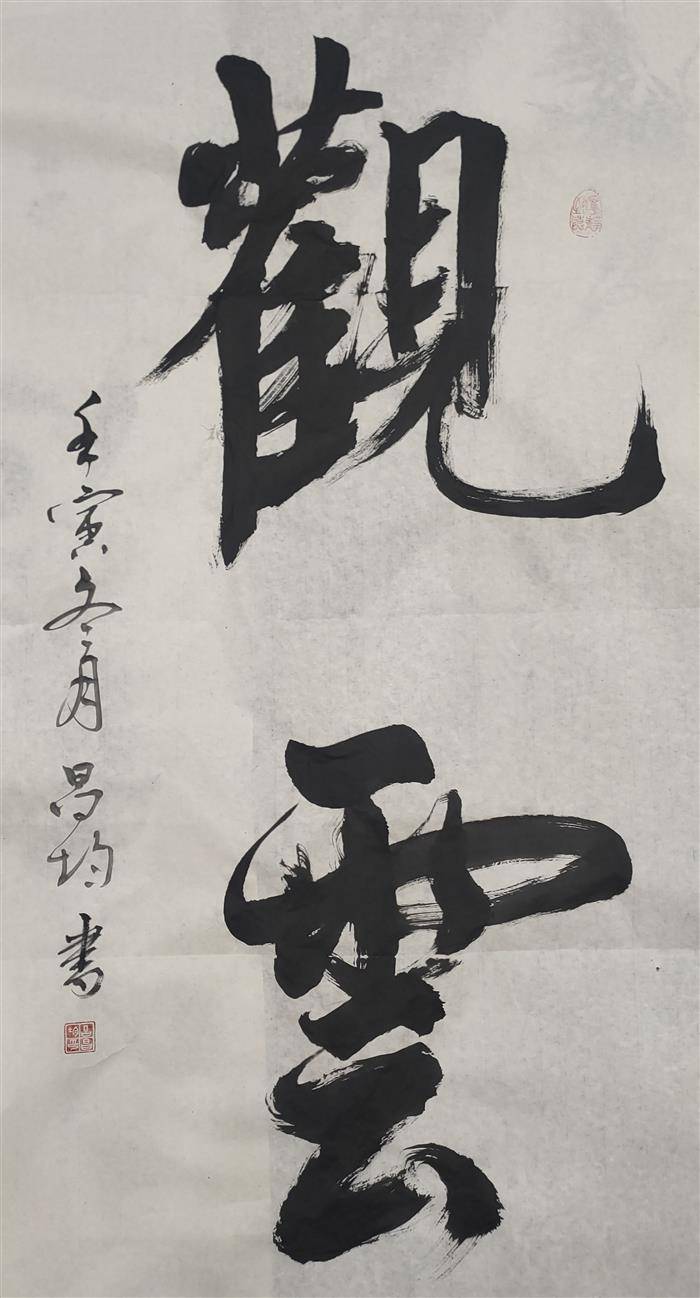 觀雲
壬寅冬月昌均書